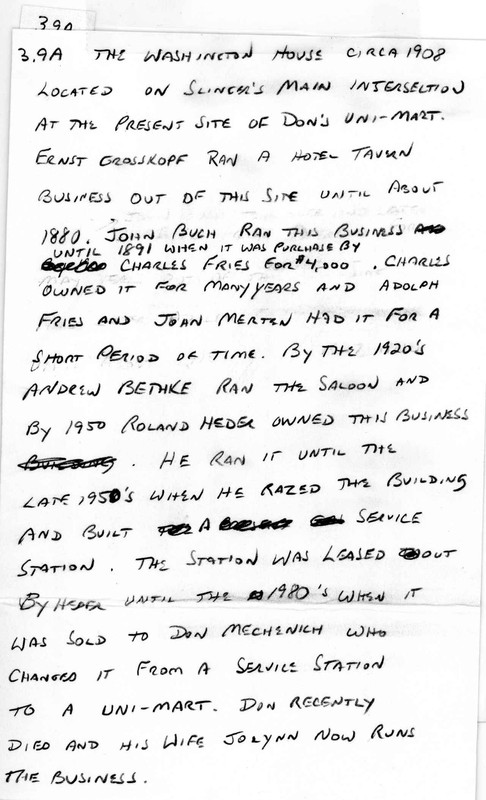 3.9A
3.9A THE WASHINGTON HOUSE CIRCA 1908
LOCATED ON SLINGER'S MAIN INTERSECTION
AT THE PRESENT SITE OF DON'S UNI-MART.
ERNST GROSSKOPF RAN A HOTEL TAVERN
BUSINESS OUT OF THIS SITE UNTIL ABOUT
1880. JOHN BUCH RAN THIS BUSINESS
UNTIL 1891 WHEN IT WAS PURCHASE BY
CHARLES FRIES FOR $4,000 . CHARLES
OWNED IT FOR MANY YEARS AND ADOLPH
FRIES AND JOHN MERTEN HAD IT FOR A
SHORT PERIOD OF TIME. BY THE 1920'S
ANDREW BETHKE RAN THE SALOON AND
BY 1950 ROLAND HEDER OWNED THIS BUSINESS
. HE RAN IT UNTIL THE
LATE 1950'S WHEN HE RAZED THE BUILDING
AND BUILT A SERVICE
STATION. THE STATION WAS LEASED OUT
BY HEDER UNTIL THE 1980'S WHEN IT
WAS SOLD TO DON MECHENICH WHO
CHANGED IT FROM A SERVICE STATION
TO A UNI-MART. DON RECENTLY
DIED AND HIS WIFE JOLYNN NOW RUNS
THE BUSINESS.